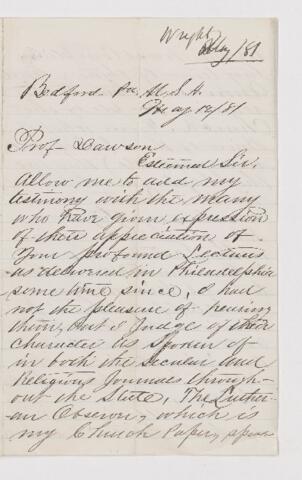 Wright
May/81
Bedford Pa. U.S.A.
May 12/81
Prof Dawson
Esteemed Sir.
Allow me to add my
testimony with the many
who have given expression
of their appreciation of
your profound Lectures
as delivered in Philadelphia
some time since, I had
not the pleasure of
them, but I Judge of their
character as spoken of
in both the secular and
religious Journals through-
out the State, The Luther-
an Observer, which is
my Church Paper,